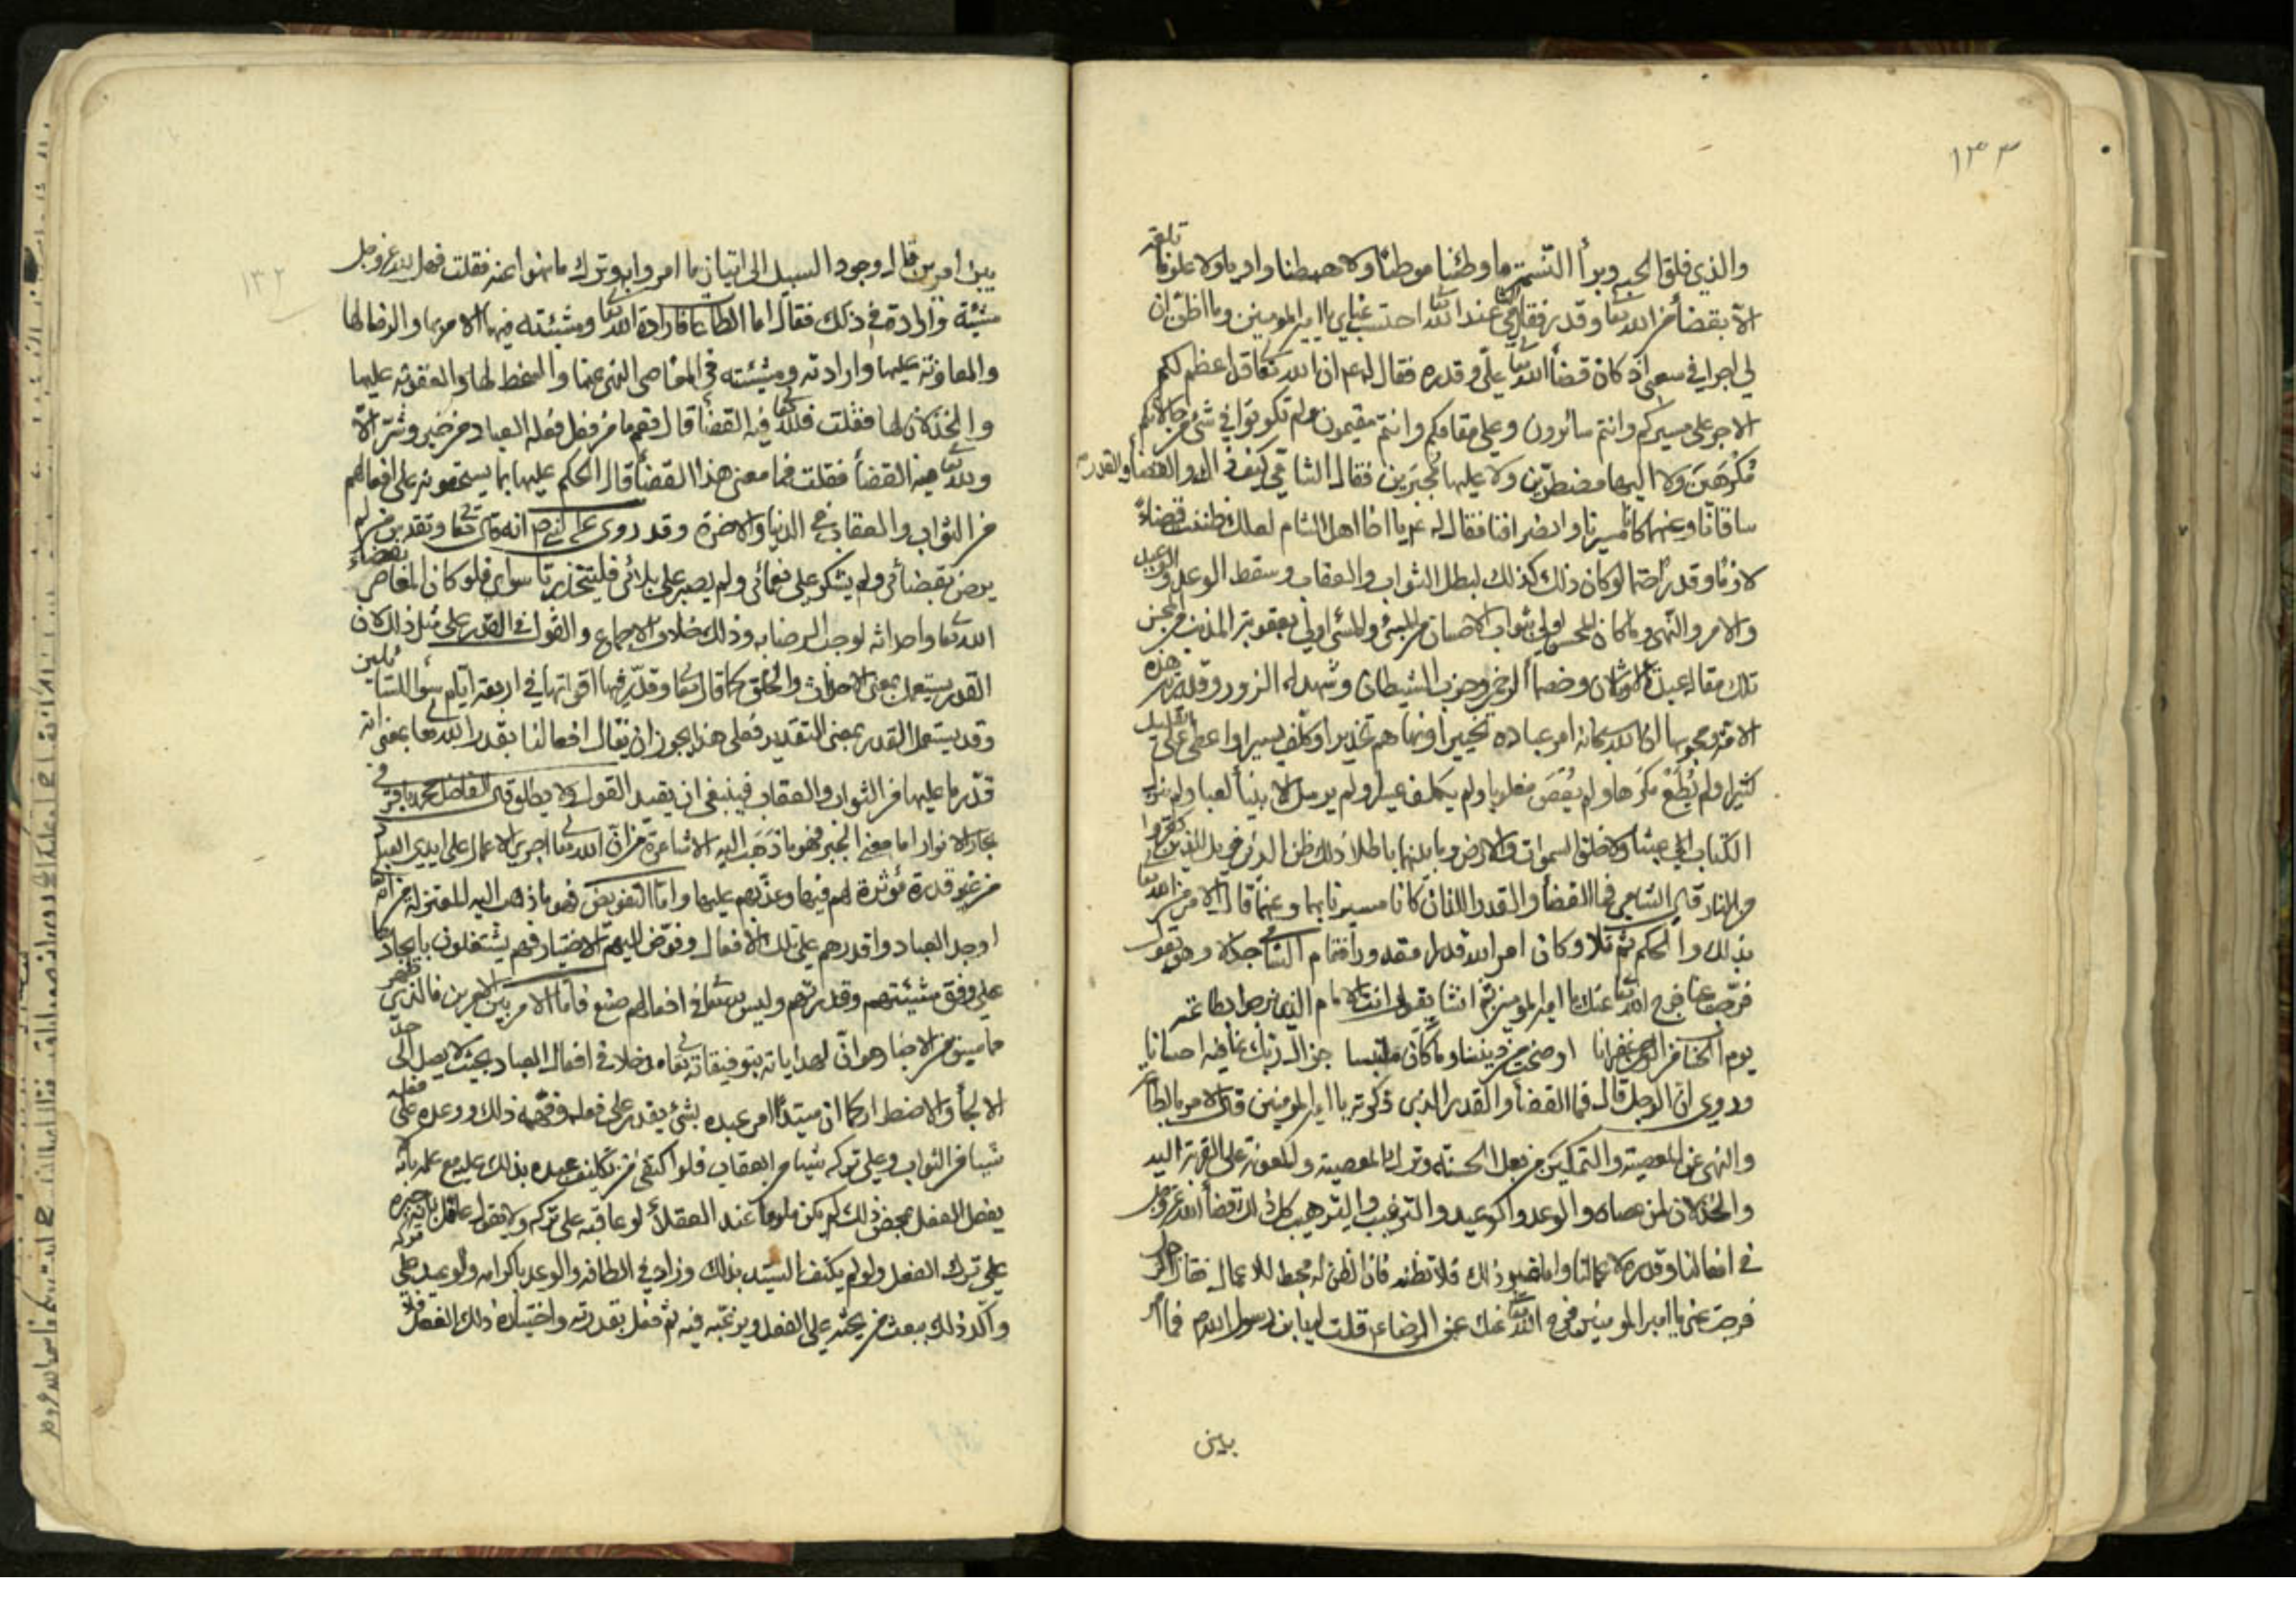 ١٣٣
والذي فلق الحبه وبرأ النسمة ما وطئنا موطئا ولا هبطنا واديا ولا علونا تلعة
الا بقضأ من الله تعا وقدر فقال الشامي عند الله تعا احتسب عناي يا امير المومنين وما اظن ان
لي اجرا في سعيي اذ كان قضأ الله تعا علي وقدره فقال له ع ان الله تعا قد اعظم لكم
الاجر على مسيركم وانتم سائرون وعلى مقامكم وانتم مقيمون ولم تكونوا في شئ من حالاتكم
مكرهين ولا اليها مضطرين ولا عليها مجبرين فقال الشامي كيف ذلك والقضأ والقدر
ساقانا وعنهما كان مسيرنا وانصرافنا فقال له ع يا اخا اهل الشام لعلك ظننت قضاءً
لازما وقدرا حتما لو كان ذلك كذلك لبطل الثواب والعقاب وسقط الوعد والوعيد
والامر والنهي وما كان المحسن اولى بثواب الاحسان من المسئ والمسئ اولى بعقوبة المذنب من المحسن
تلك مقالة عبدة الاوثان وخصمأ الرحمن وحزب الشيطان وشهدأ الزور وقدرية هذه
الامة ومجوسها ان الله سبحانه امر عباده تخييرا ونهاهم تحذيرا وكلف يسيرا واعطى على القليل
كثيرا ولم يُطَع مكرها ولم يُعصَ مغلوبا ولم يكلف عسيرا ولم يرسل الانبيأ لعبا ولم ينزل
الكتاب الى عبثا ولا خلق السموات والارض وما بينهما باطلا ذلك ظن الذين كفروا فويل للذين كفروا
من النار قال الشامي فما القضأ والقدر اللذان كانا مسيرنا بهما وعنهما قال الامر من الله تعا
بذلك والحكم ثم تلا وكان امر الله قدرا مقدورا فقام الشامي جذلا وهو يقول
فرجت عنا فرج الله تعا عنك يا امير المومنين ثم انشأ يقول انت الامام الذي نرجو بطاعته
يوم النجاة من الرحمن غفرانا اوضحت من ديننا ما كان ملتبسا جزاك ربك عنا فيه احسانا
وروي ان الرجل قال فما القضأ والقدر الذي ذكرته يا امير المومنين قال الامر بالطاعة
والنهي عن المعصية والتمكين من فعل الحسنة وترك المعصية والمعونة على القربة اليه
والخذلان لمن عصاه والوعد والوعيد والترغيب والترهيب كل ذلك قضأ الله عز وجل
في افعالنا وقدره لاعمالنا واما غير ذلك فلا تظنه فان الظن له محبط للاعمال فقال الرجل
فرجت عني يا امير المومنين فرج الله تعا عنك عن الرضا ع قلت له يا بن رسول الله ص فما امر
بين
١٣٢
بين امرين قال وجود السبيل الى اتيان ما امروا به وترك ما نهوا عنه فقلت فهل لله عز وجل
مشيئة وارادة في ذلك فقال اما الطاعات فارادة الله تعا ومشيئته فيها الامر بها والرضا لها
والمعاونة عليها وارادته ومشيئته في المعاصي النهي عنها والسخط لها والعقوبة عليها
والخذلان لها فقلت فلله تعا فيه القضأ قال نعم ما من فعل فعله العباد من خير وشر الا
ولله تعا فيه القضأ فقلت فما معنى هذا القضأ قال الحكم عليها بما يستحقونه على افعالهم
من الثواب والعقاب في الدنيا والاخرة وقد روي عن النبي ص انه قال تعا وتقدس من لم
يرض بقضائي ولم يشكر على نعمائي ولم يصبر على بلائي فليتخذ ربا سواي فلو كان المعاصي بقضاء
الله تعا واحداثه لوجب الرضا به وذلك خلاف الاجماع والقول في القدر على مثل ذلك لان
القدر يستعمل بمعنى الاحداث والخلق كما قال تعا وقدر فيها اقواتها في اربعة ايام سوأ للسائلين
وقد يستعمل القدر بمعنى التقدير فعلى هذا يجوز ان يقال افعالنا بقدر الله تعا بمعنى انه
قدر ما عليها من الثواب والعقاب فينبغي ان يقيد القول ولا يطلق قال الفاضل محمد باقر في
بحار الانوار اما معنى الجبر فهو ما ذهب اليه الاشاعرة من ان الله تعا اجرى الاعمال على ايدي العباد
من غير قدرة مؤثرة لهم فيها وعذبهم عليها واما التفويض فهو ما ذهب اليه المعتزلة من انه تعا
اوجد العباد واقدرهم على تلك الافعال وفوض اليهم الاختيار فهم يستقلون بايجادها
على وفق مشيئتهم وقدرتهم وليس لله تعا في افعالهم صنع فاما الامر بين الامرين فالذي ظهر
مما سبق من الاخبار هو ان لهداياته وتوفيقاته تعا مدخلا في افعال العباد بحيث لا يصل الى حد
الالجأ والاضطرار كما ان سيدا امر عبده بشئ يقدر على فعله وفهمه ذلك ووعده على فعله
شيئا من الثواب وعلى تركه شيئا من العقاب فلو اكتفى من تكليف عبده بذلك عليه مع علمه بانه لا
يفعل الفعل بمحض ذلك لم يكن ملوما عند العقلأ لو عاقبه على تركه ولا يقول عاقل بانه جبره
على ترك الفعل ولو لم يكتف السيد بذلك وزاد في الطافه والوعد باكرامه والوعيد على تركه
واكد ذلك ببعث من يحثه على الفعل ويرغبه فيه ثم فعل بقدرته واختياره ذلك الفعل فلا